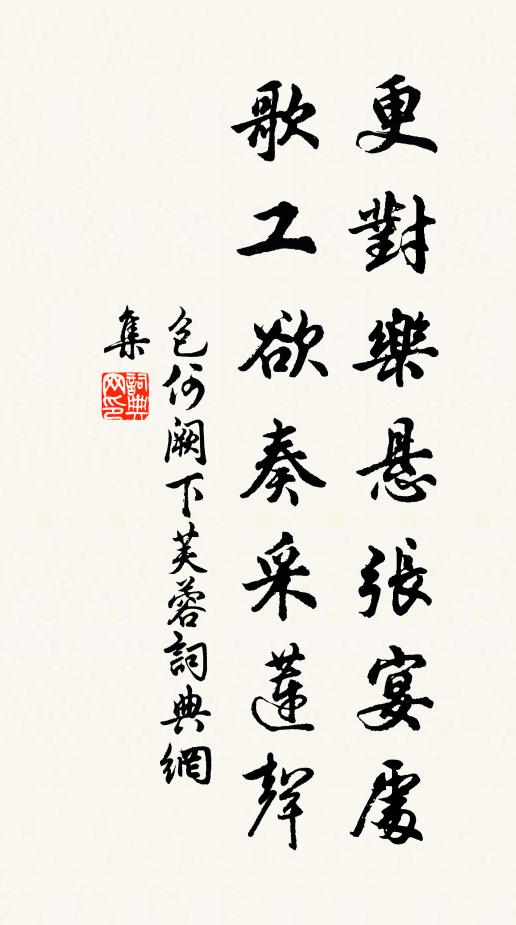 更對樂懸張宴處
歌工欲奏采蓮聲
包何闕下芙蓉詞典網
集
詞典網印